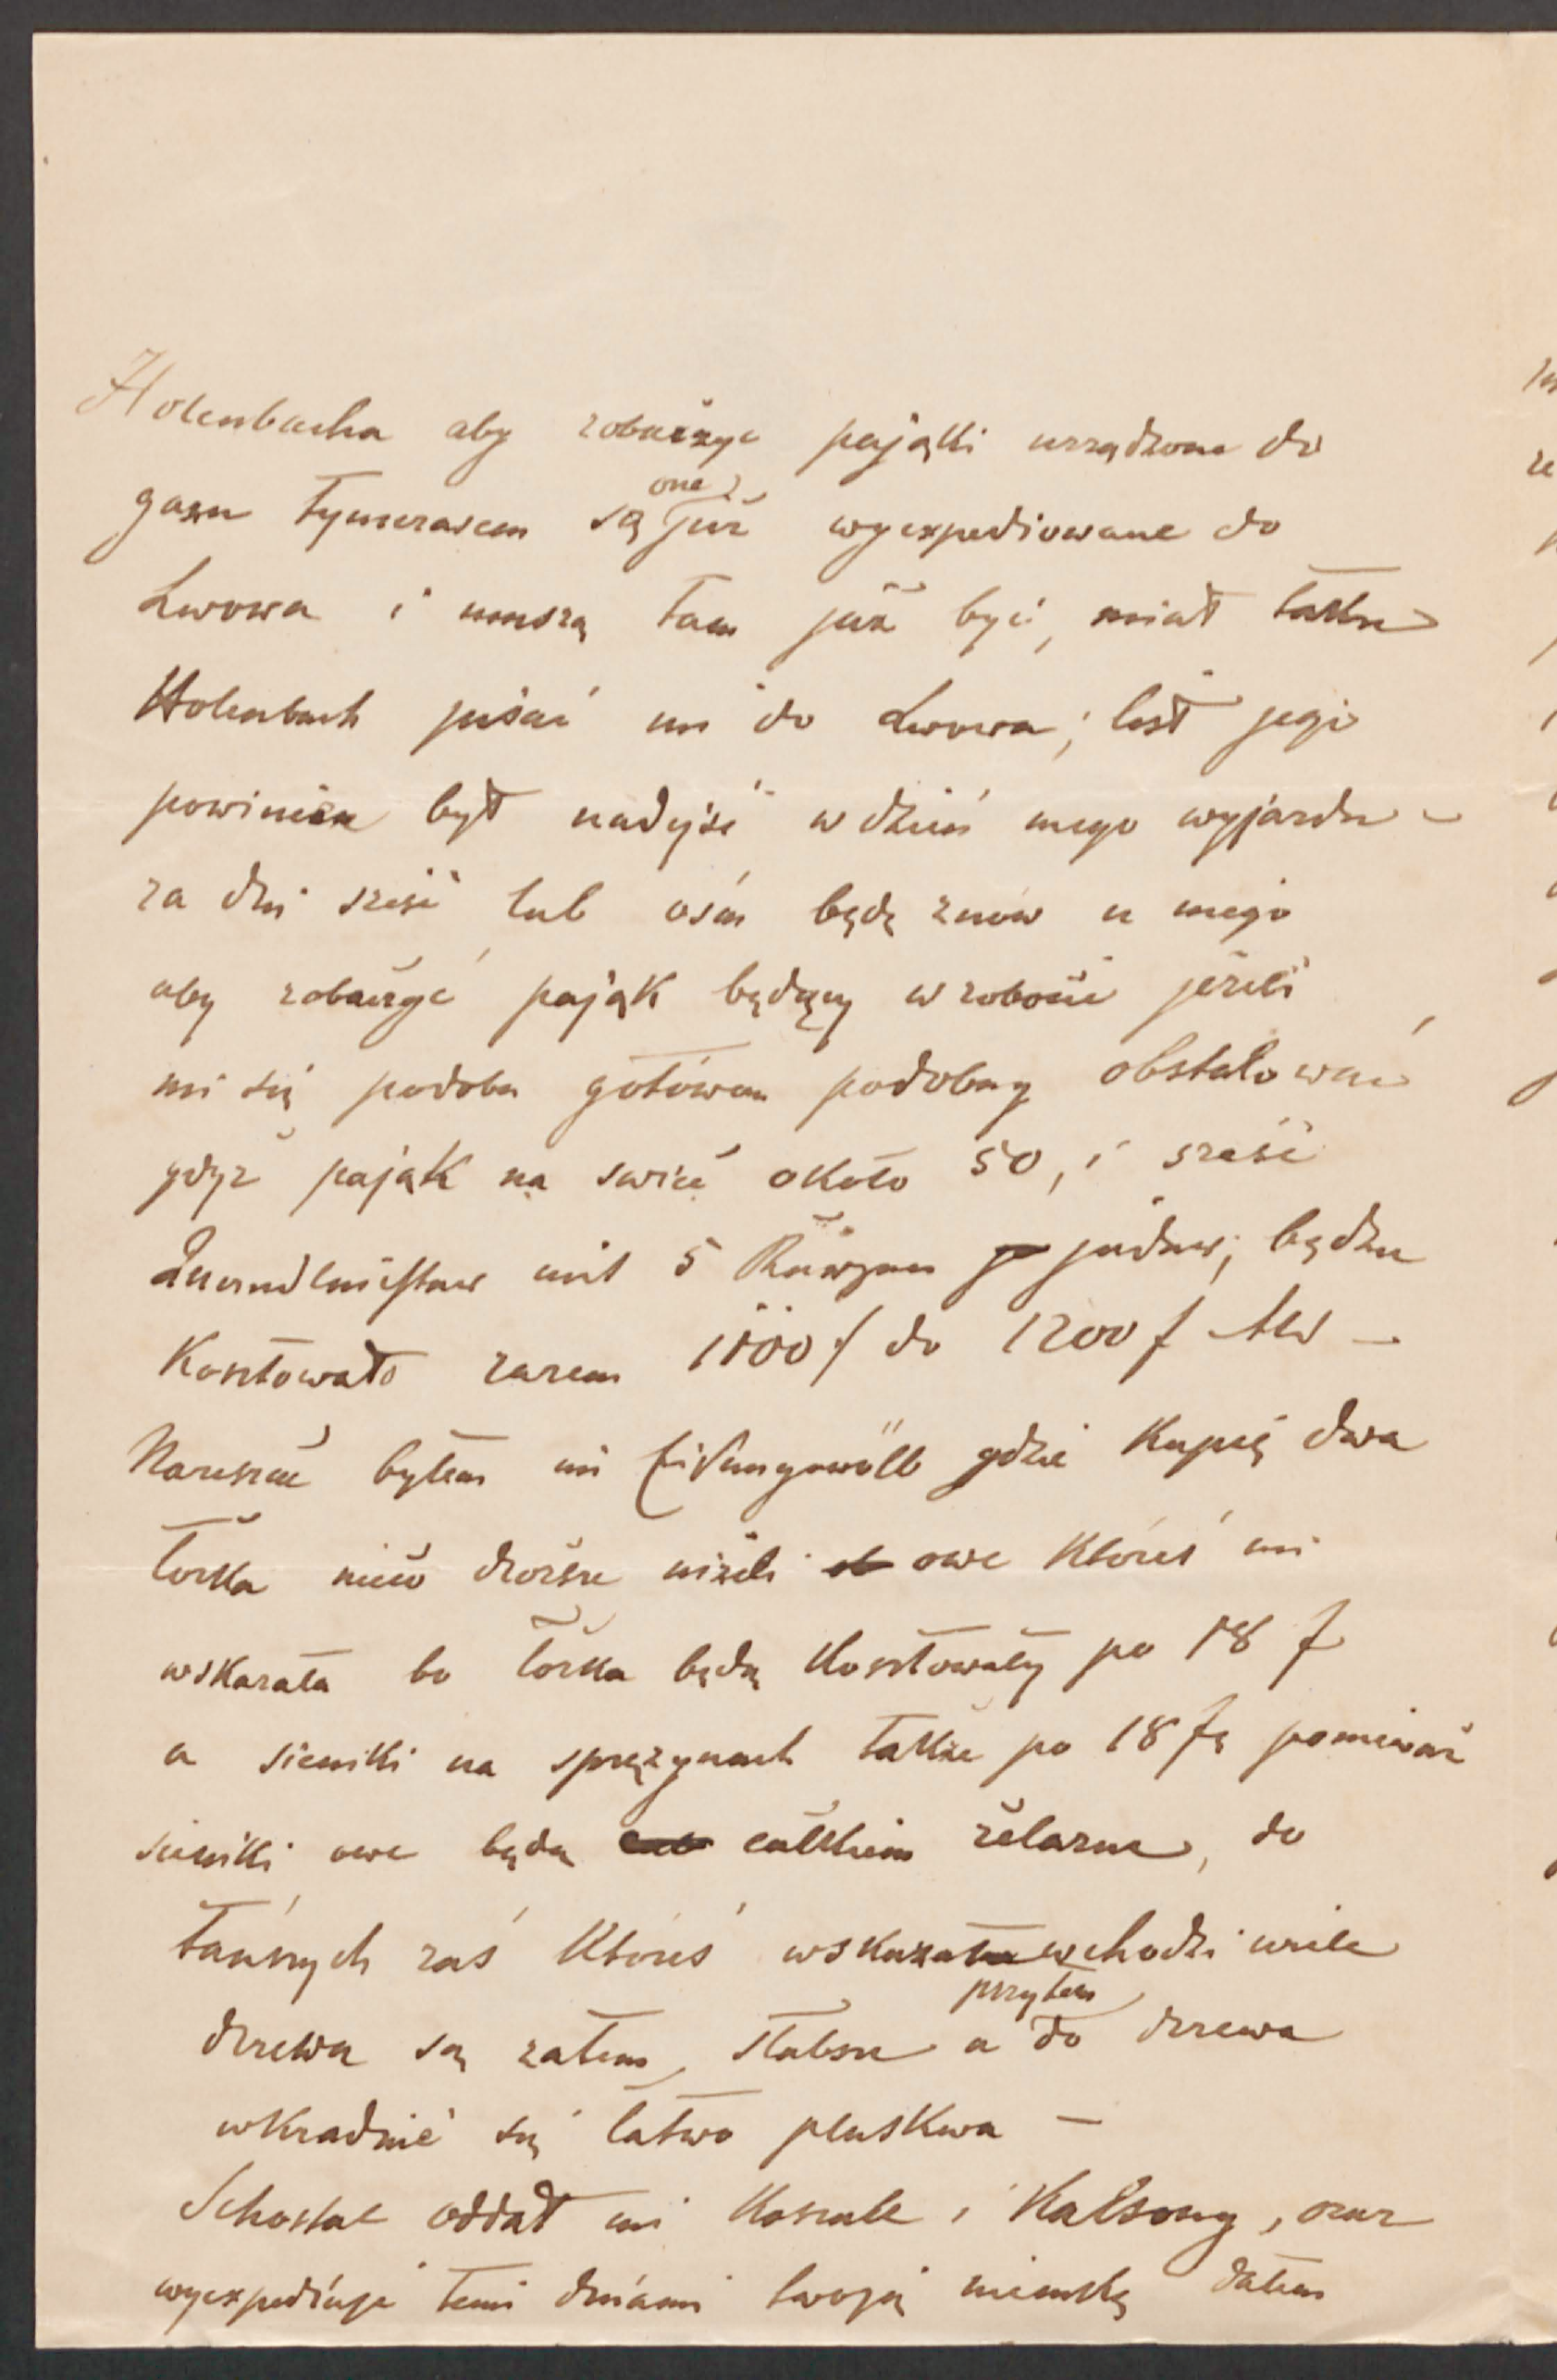 Holenbacha aby zobaczyć pająki urządzone do
gazu tymczasem są one już wyexpediowane do
Lwowa i muszą tam już być, miał także
Holenbach pisać mi do Lwowa; list jego
powinien był nadejść w dzień mego wyjazdu –
za dni sześć lub ośm będę znów u niego
aby zobaczyć pająk będący w robocie jeżeli
mi się podoba gotówem podobny obstalować
gdyż pająk na świec około 50, i sześć
mit 5 Kerzen jedne; będzie
Kosztowało razem 1100 f do 1200 f AW –
Nareszcie byłem im gdzie Kupię dwa
łóżka nieco droższe niżeli owe któreś mi
wskazała bo łóżka będą Kosztowały po 18 f
a sienniki na sprężynach także po 18 f, ponieważ
sienniki owe będą całkiem żelazne, do
tańszych zaś któreś wskazała wchodzi wiele
drzewa są zatem słabsze a przytem do drzewa
wkradnie się łatwo pluskwa –
Schostal oddał mi Koszule i Kalsony, oraz
wyexpediuje temi dniami twoją dałem